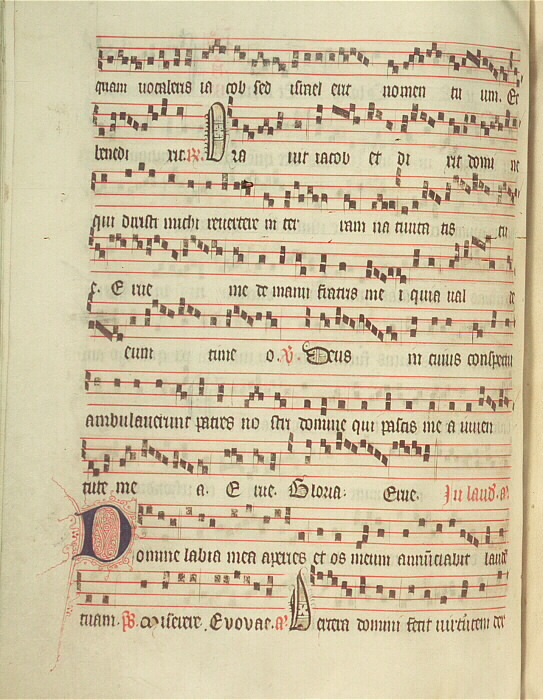 quam vocaberis ia cob sed israel erit nomen tu um. Et
benedi xit. R. Ora uit iacob et di xit domi ne
qui dixisti michi reuertere in ter ram na tiuita tis tu
e. E rue me de manu fratris me i quia ual de
eum time o. V. Deus in cuius conspectu
ambulauerunt patres no stri domine qui pascis me a iuuen
tute me a. E rue. Gloria. Erue. In laud. a.
Domine labia mea aperies et os meum annunciabit laude
tuam. ps. Miserere. Evovae. a. Dextera domini fecit uirtutem dex